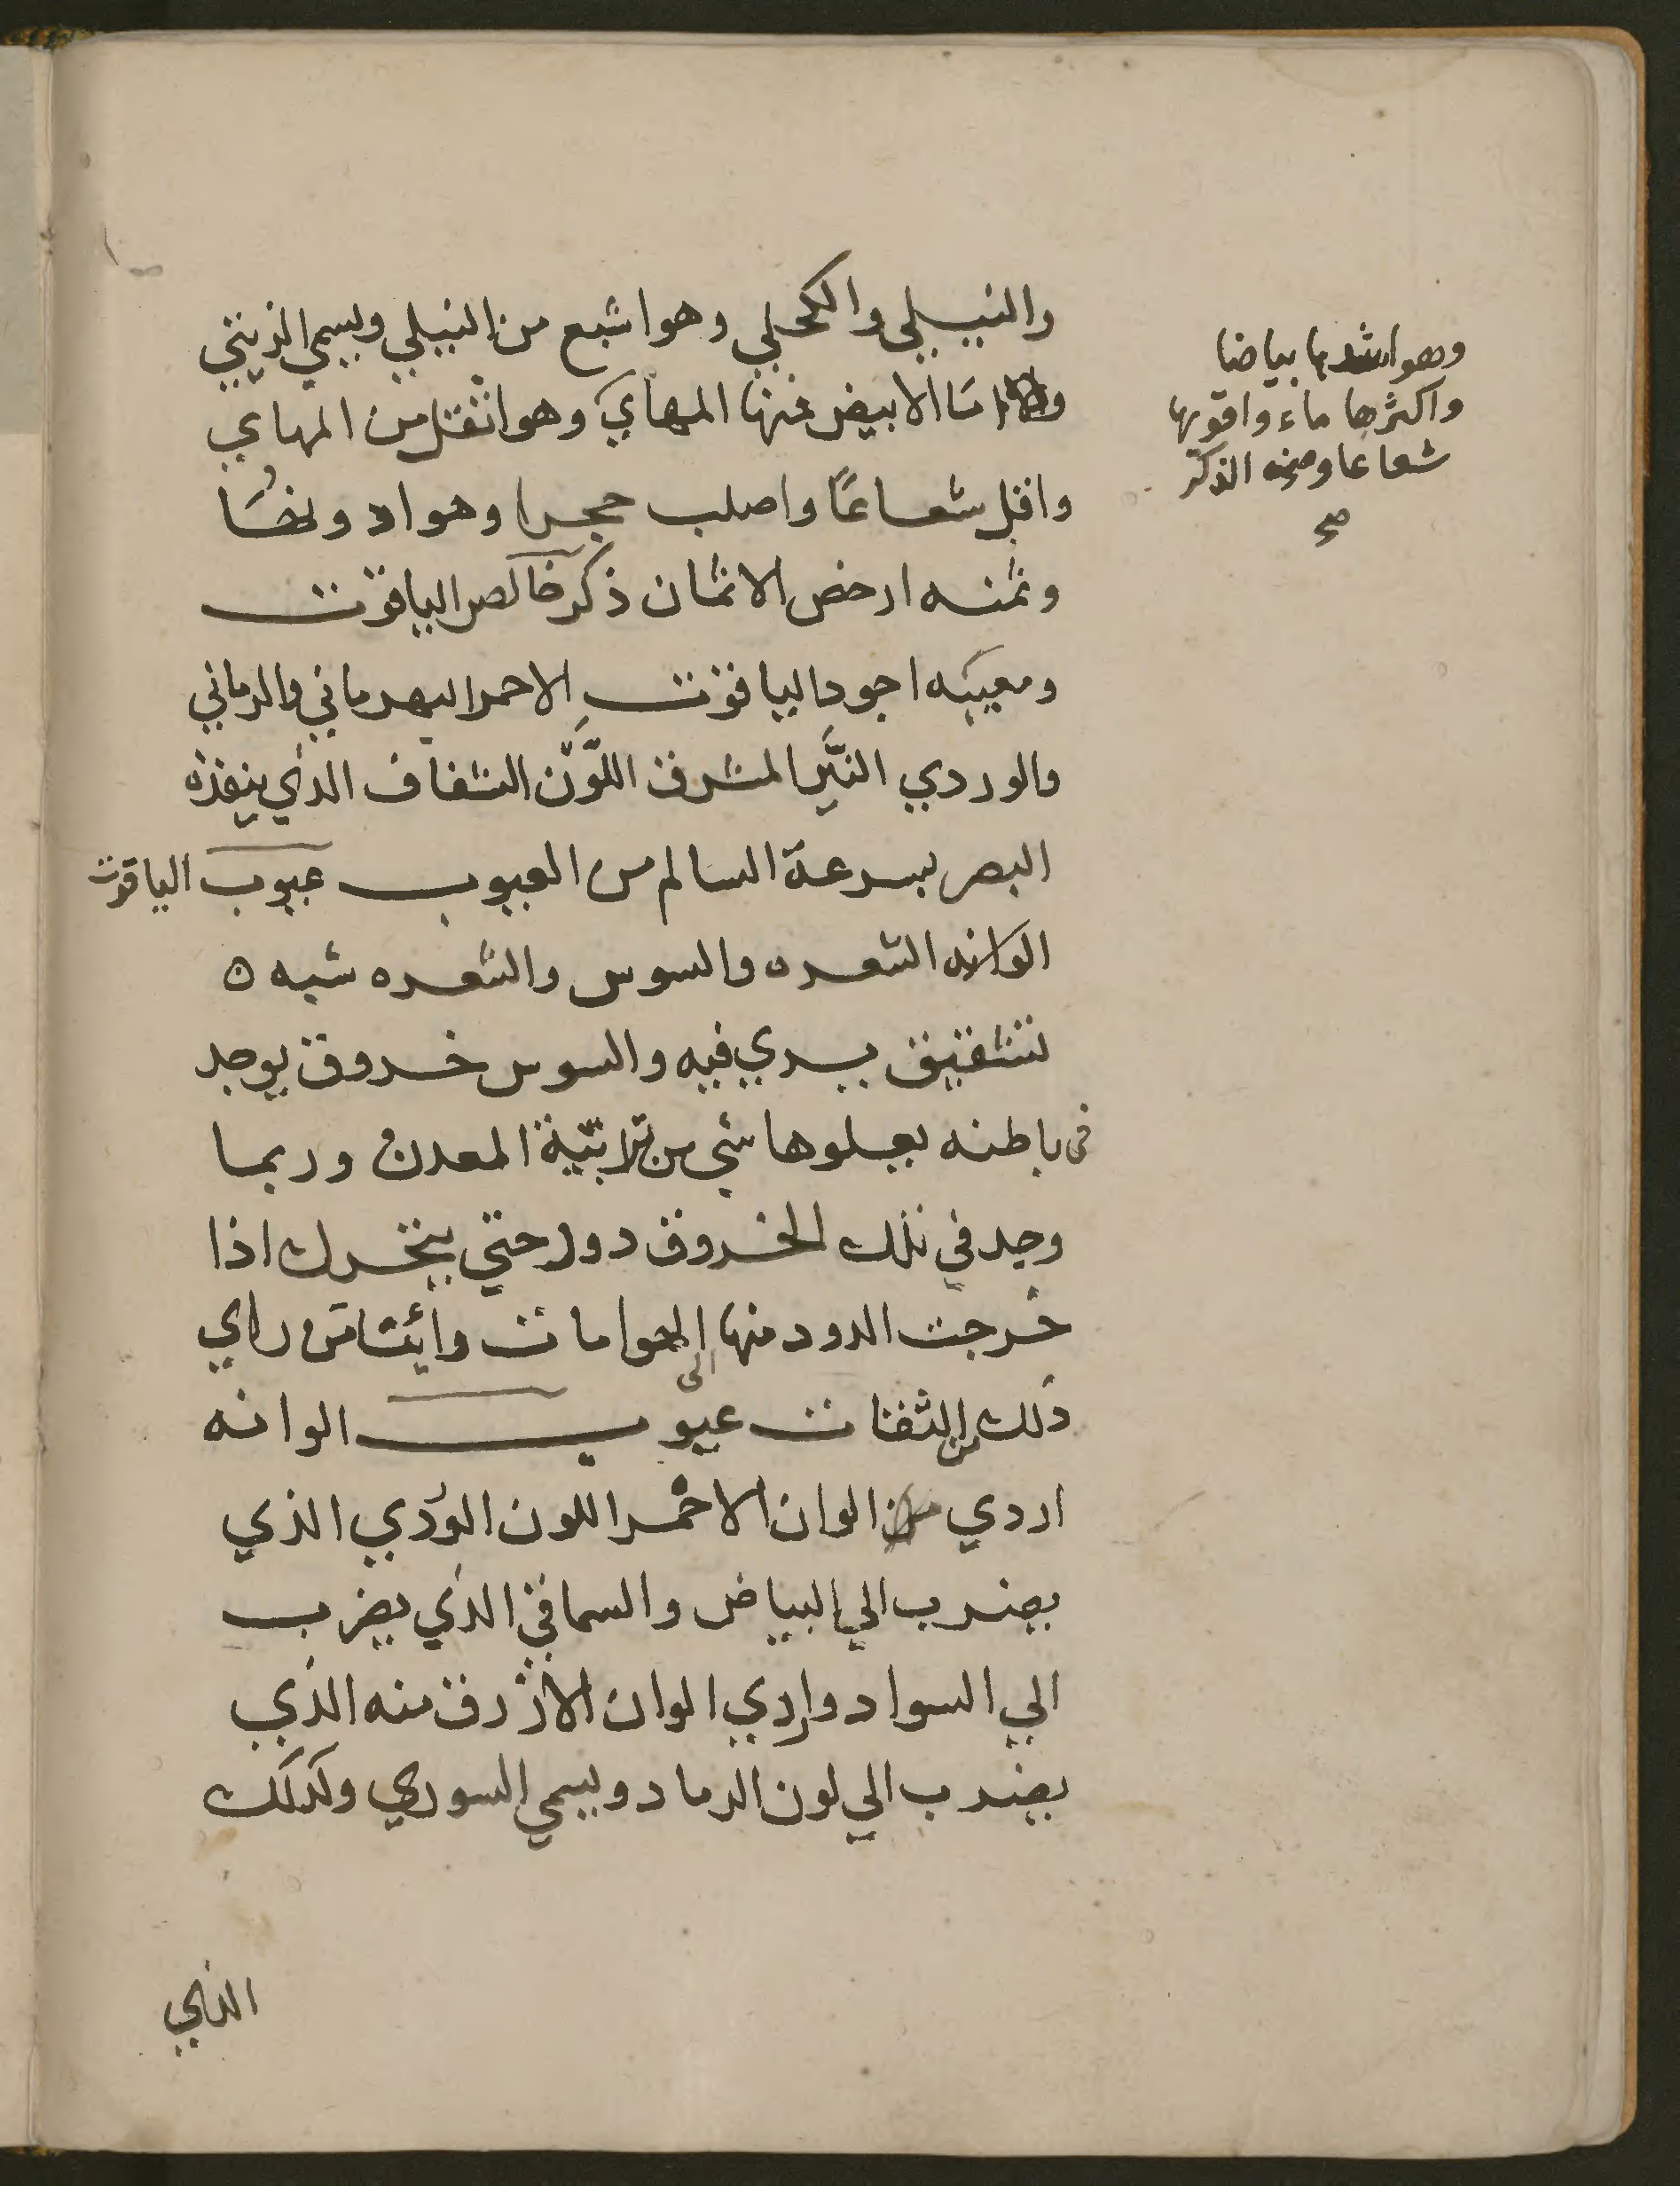 والنيلي والكحلي وهو اشبع من النيلي ويسمي الزيتي
واما الابيض فمنها المهاي وهو اثقل من المهاي
واقل شعاعًا واصلب حجرا وهو ادونهَا
وثمنه ارخص الاثمان ذكر خالص الياقوت
ومعيبه اجود الياقوت الاحمر البهرماني والرماني
والوردي النيّر المشرق اللّون الشفاف الذي ينفذه
البصر بسرعة السالم من العيوب عيوب الياقوت
الوانه الشعره والسوس والشعره شبه ه
تشقيق يري فيه والسوس خروق يوجد
في باطنه يعلوها شي من ترابيّة المعدن وربما
وجد في تلك الخروق دود حتي يتحرك اذا
خرجت الدود منها الي الهوا ماتت وايثا من راي
ذلك من الثقات عيوب الوانه
اردي الوان الاحمر اللون الوردي الذي
يضرب الي البياض والسماقي الذي يضرب
الي السواد واردي الوان الازرق منه الذي
يضرب الي لون الرماد ويسمي السوري وكذلك
الذي
وهو اشدها بياضا
واكثرها ماء واقوها
شعاعا ومنه الذكر
صح